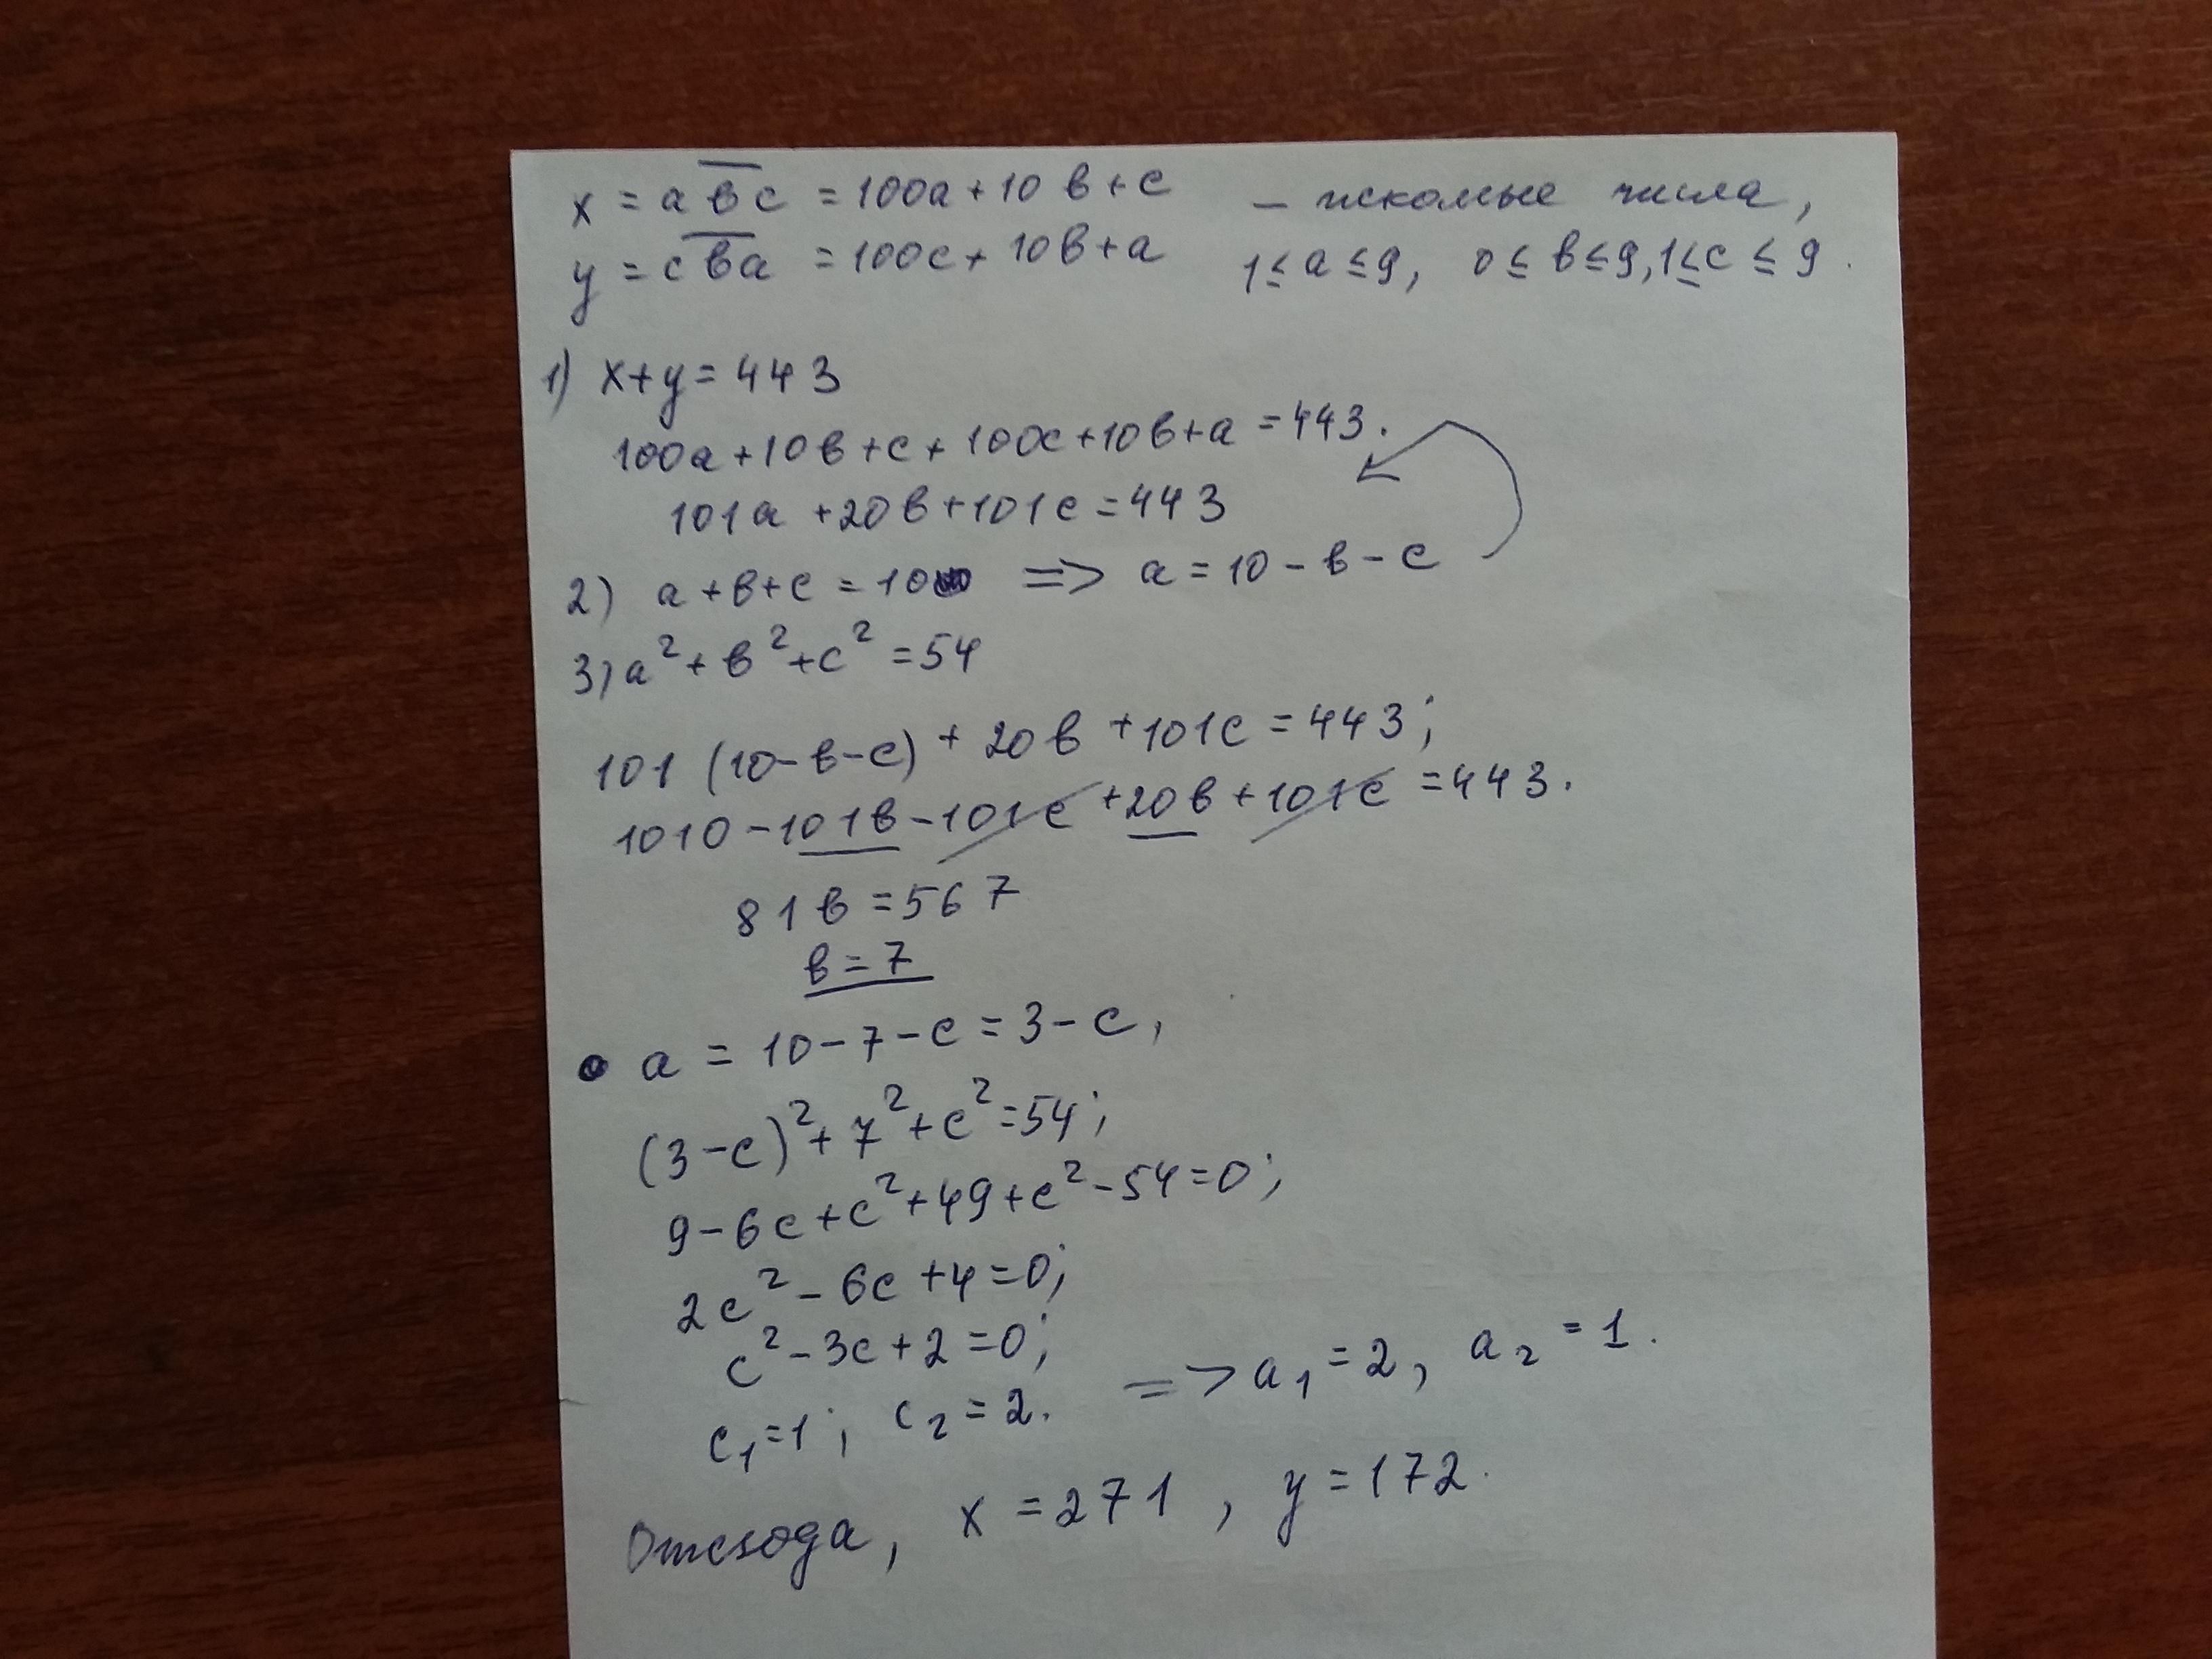 x = aвc = 100a + 10в + c — искомые числа,
y = cвa = 100c + 10в + a 1 ≤ a ≤ 9, 0 ≤ в ≤ 9, 1 ≤ c ≤ 9.
1) x + y = 443
100a + 10в + c + 100c + 10в + a = 443.
101a + 20в + 101c = 443
2) a + в + c = 10 => a = 10 - в - c
3) a² + в² + c² = 54
101 (10 - в - c) + 20в + 101c = 443;
1010 - 101в - 101c + 20в + 101c = 443.
81в = 567
в = 7
a = 10 - 7 - c = 3 - c,
(3 - c)² + 7² + c² = 54;
9 - 6c + c² + 49 + c² - 54 = 0;
2c² - 6c + 4 = 0;
c² - 3c + 2 = 0;
c₁ = 1; c₂ = 2. => a₁ = 2, a₂ = 1.
Отсюда, x = 271, y = 172.